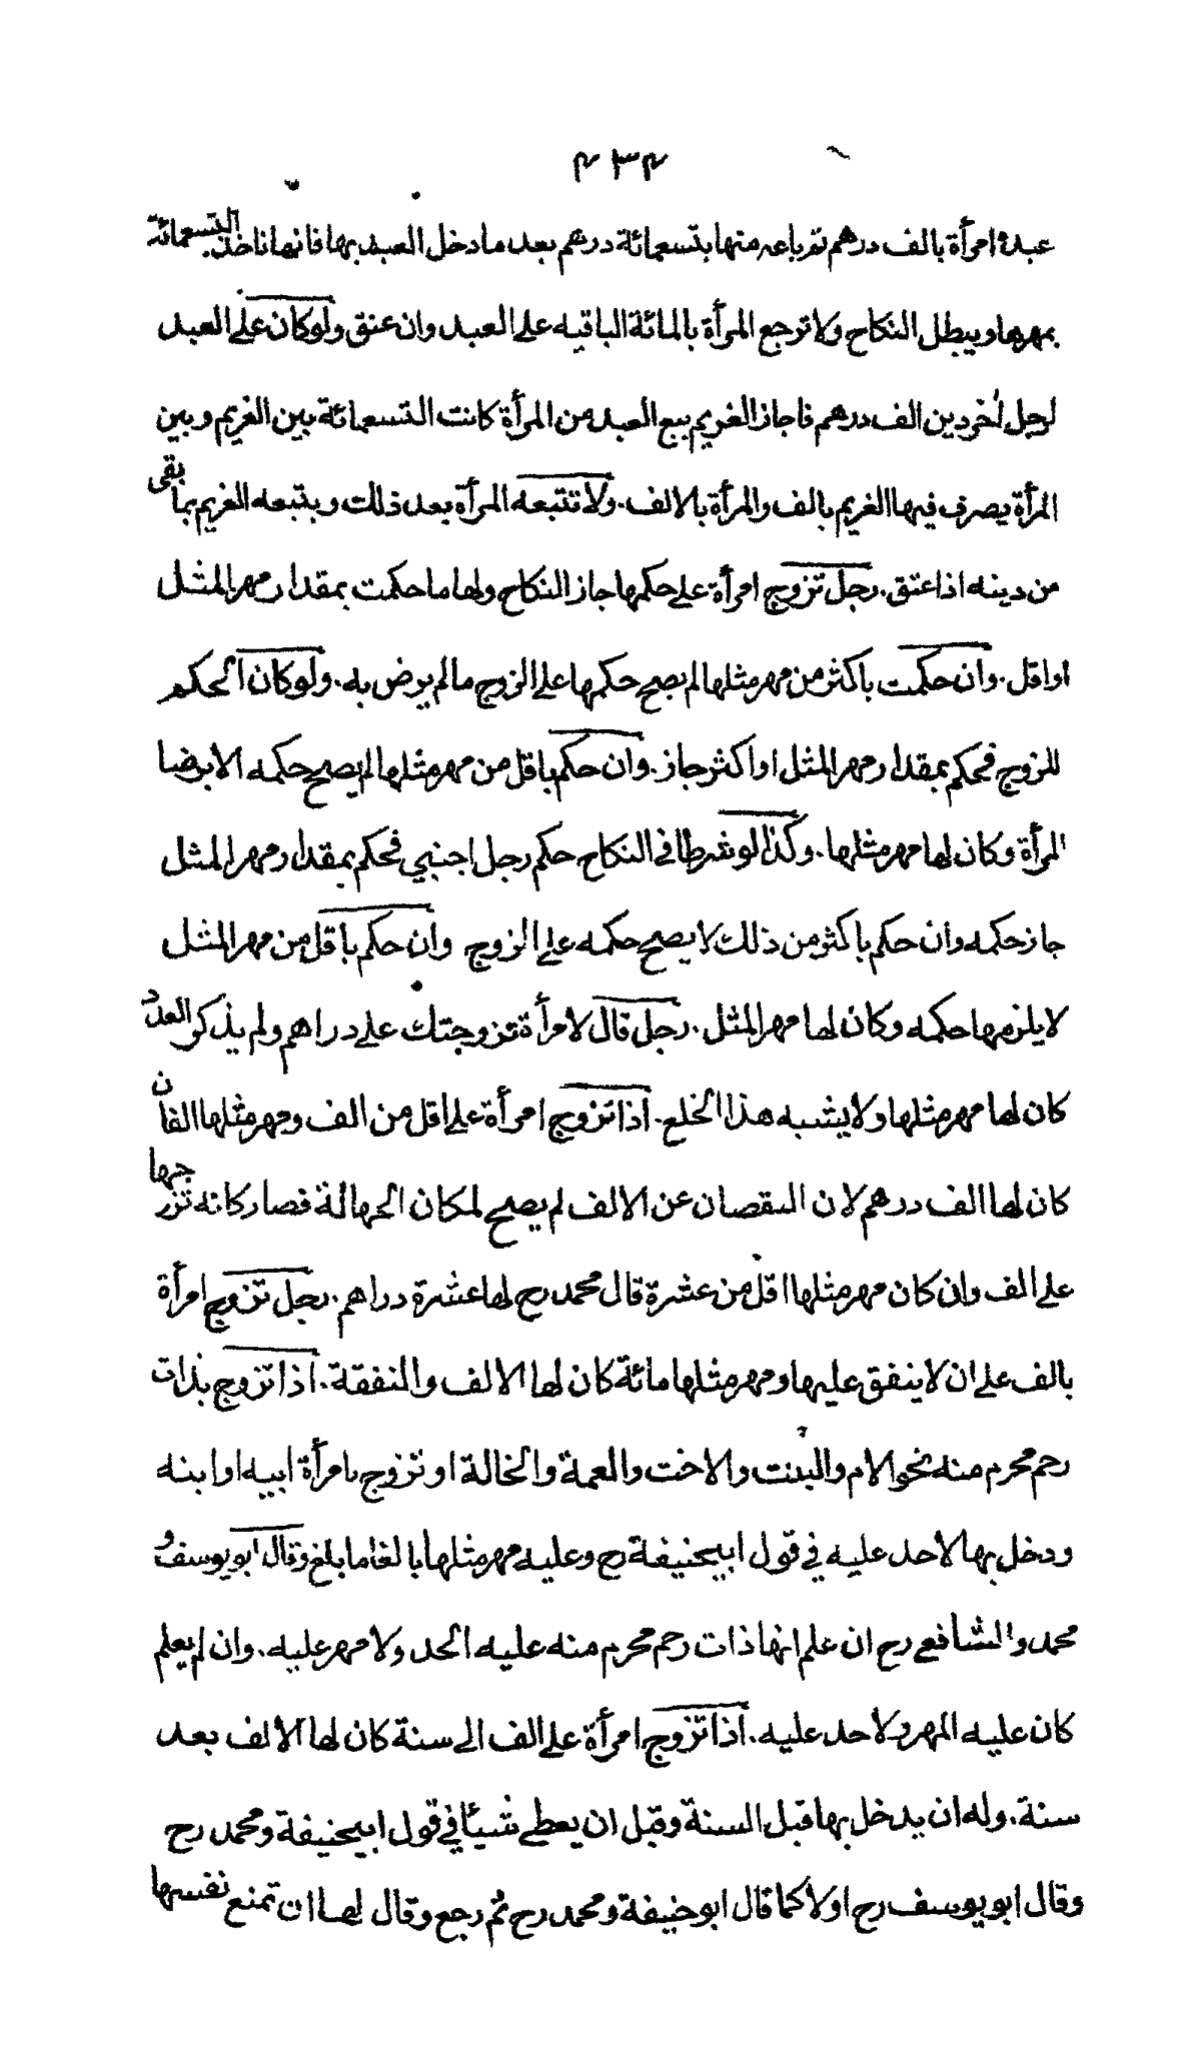 ٤٣٤
عبده امرأة بالف درهم ثم باعه منها بتسعمائة درهم بعد ما دخل العبد بها فانها تاخذ التسعمائة
بمهرها ويبطل النكاح ولا ترجع المرأة بالمائة الباقيه على العبد وان عتق ولو كان على العبد
لرجل أخر دين الف درهم فاجاز الغريم بيع العبد من المرأة كانت التسعمائة بين الغريم وبين
المرأة يصرف فيها الغريم بالف والمرأة بالالف. ولا تتبعه المرأة بعد ذلك ويتبعه الغريم بما بقى
من دينه اذا عتق. رجل تزوج امرأة على حكمها جاز النكاح ولها ما حكمت بمقدار مهر المثل
او اقل. وان حكمت باكثر من مهر مثلها لم يصح حكمها على الزوج ما لم يرض به. ولو كان الحكم
للزوج فحكم بمقدار مهر المثل او اكثر جاز. وان حكم باقل من مهر مثلها لم يصح حكمه الا برضا
المرأة وكان لها مهر مثلها. وكذا لو شرطا فى النكاح حكم رجل اجنبي فحكم بمقدار مهر المثل
جاز حكمه وان حكم باكثر من ذلك لا يصح حكمه على الزوج وان حكم باقل من مهر المثل
لا يلزمها حكمه وكان لها مهر المثل. رجل قال لامرأة تزوجتك على دراهم ولم يذكر العدد
كان لها مهر مثلها ولا يشبه هذا الخلع. اذا تزوج امرأة على اقل من الف ومهر مثلها الفان
كان لها الف درهم لان النقصان عن الالف لم يصح لمكان الجهالة فصار كانه تزوجها
على الف وان كان مهر مثلها اقل من عشرة قال محمد رح لها عشرة دراهم. رجل تزوج امرأة
بالف على ان لا ينفق عليها ومهر مثلها مائة كان لها الالف والنفقة. اذا تزوج بذات
رحم محرم منه نحو الام والبنت والاخت والعمة والخالة او تزوج بامرأة ابيه او ابنه
ودخل بها لا حد عليه في قول ابيحنيفة رح وعليه مهر مثلها بالغا ما بلغ وقال ابو يوسف و
محمد والشافعي رح ان علم انها ذات رحم محرم منه عليه الحد ولا مهر عليه. وان لم يعلم
كان عليه المهر ولا حد عليه. اذا تزوج امرأة على الف الى سنة كان لها الالف بعد
سنة. وله ان يدخل بها قبل السنة وقبل ان يعطي شيئا في قول ابيحنيفة ومحمد رح
وقال ابو يوسف رح اولا كما قال ابو حنيفة ومحمد رح ثم رجع وقال لها ان تمنع نفسها